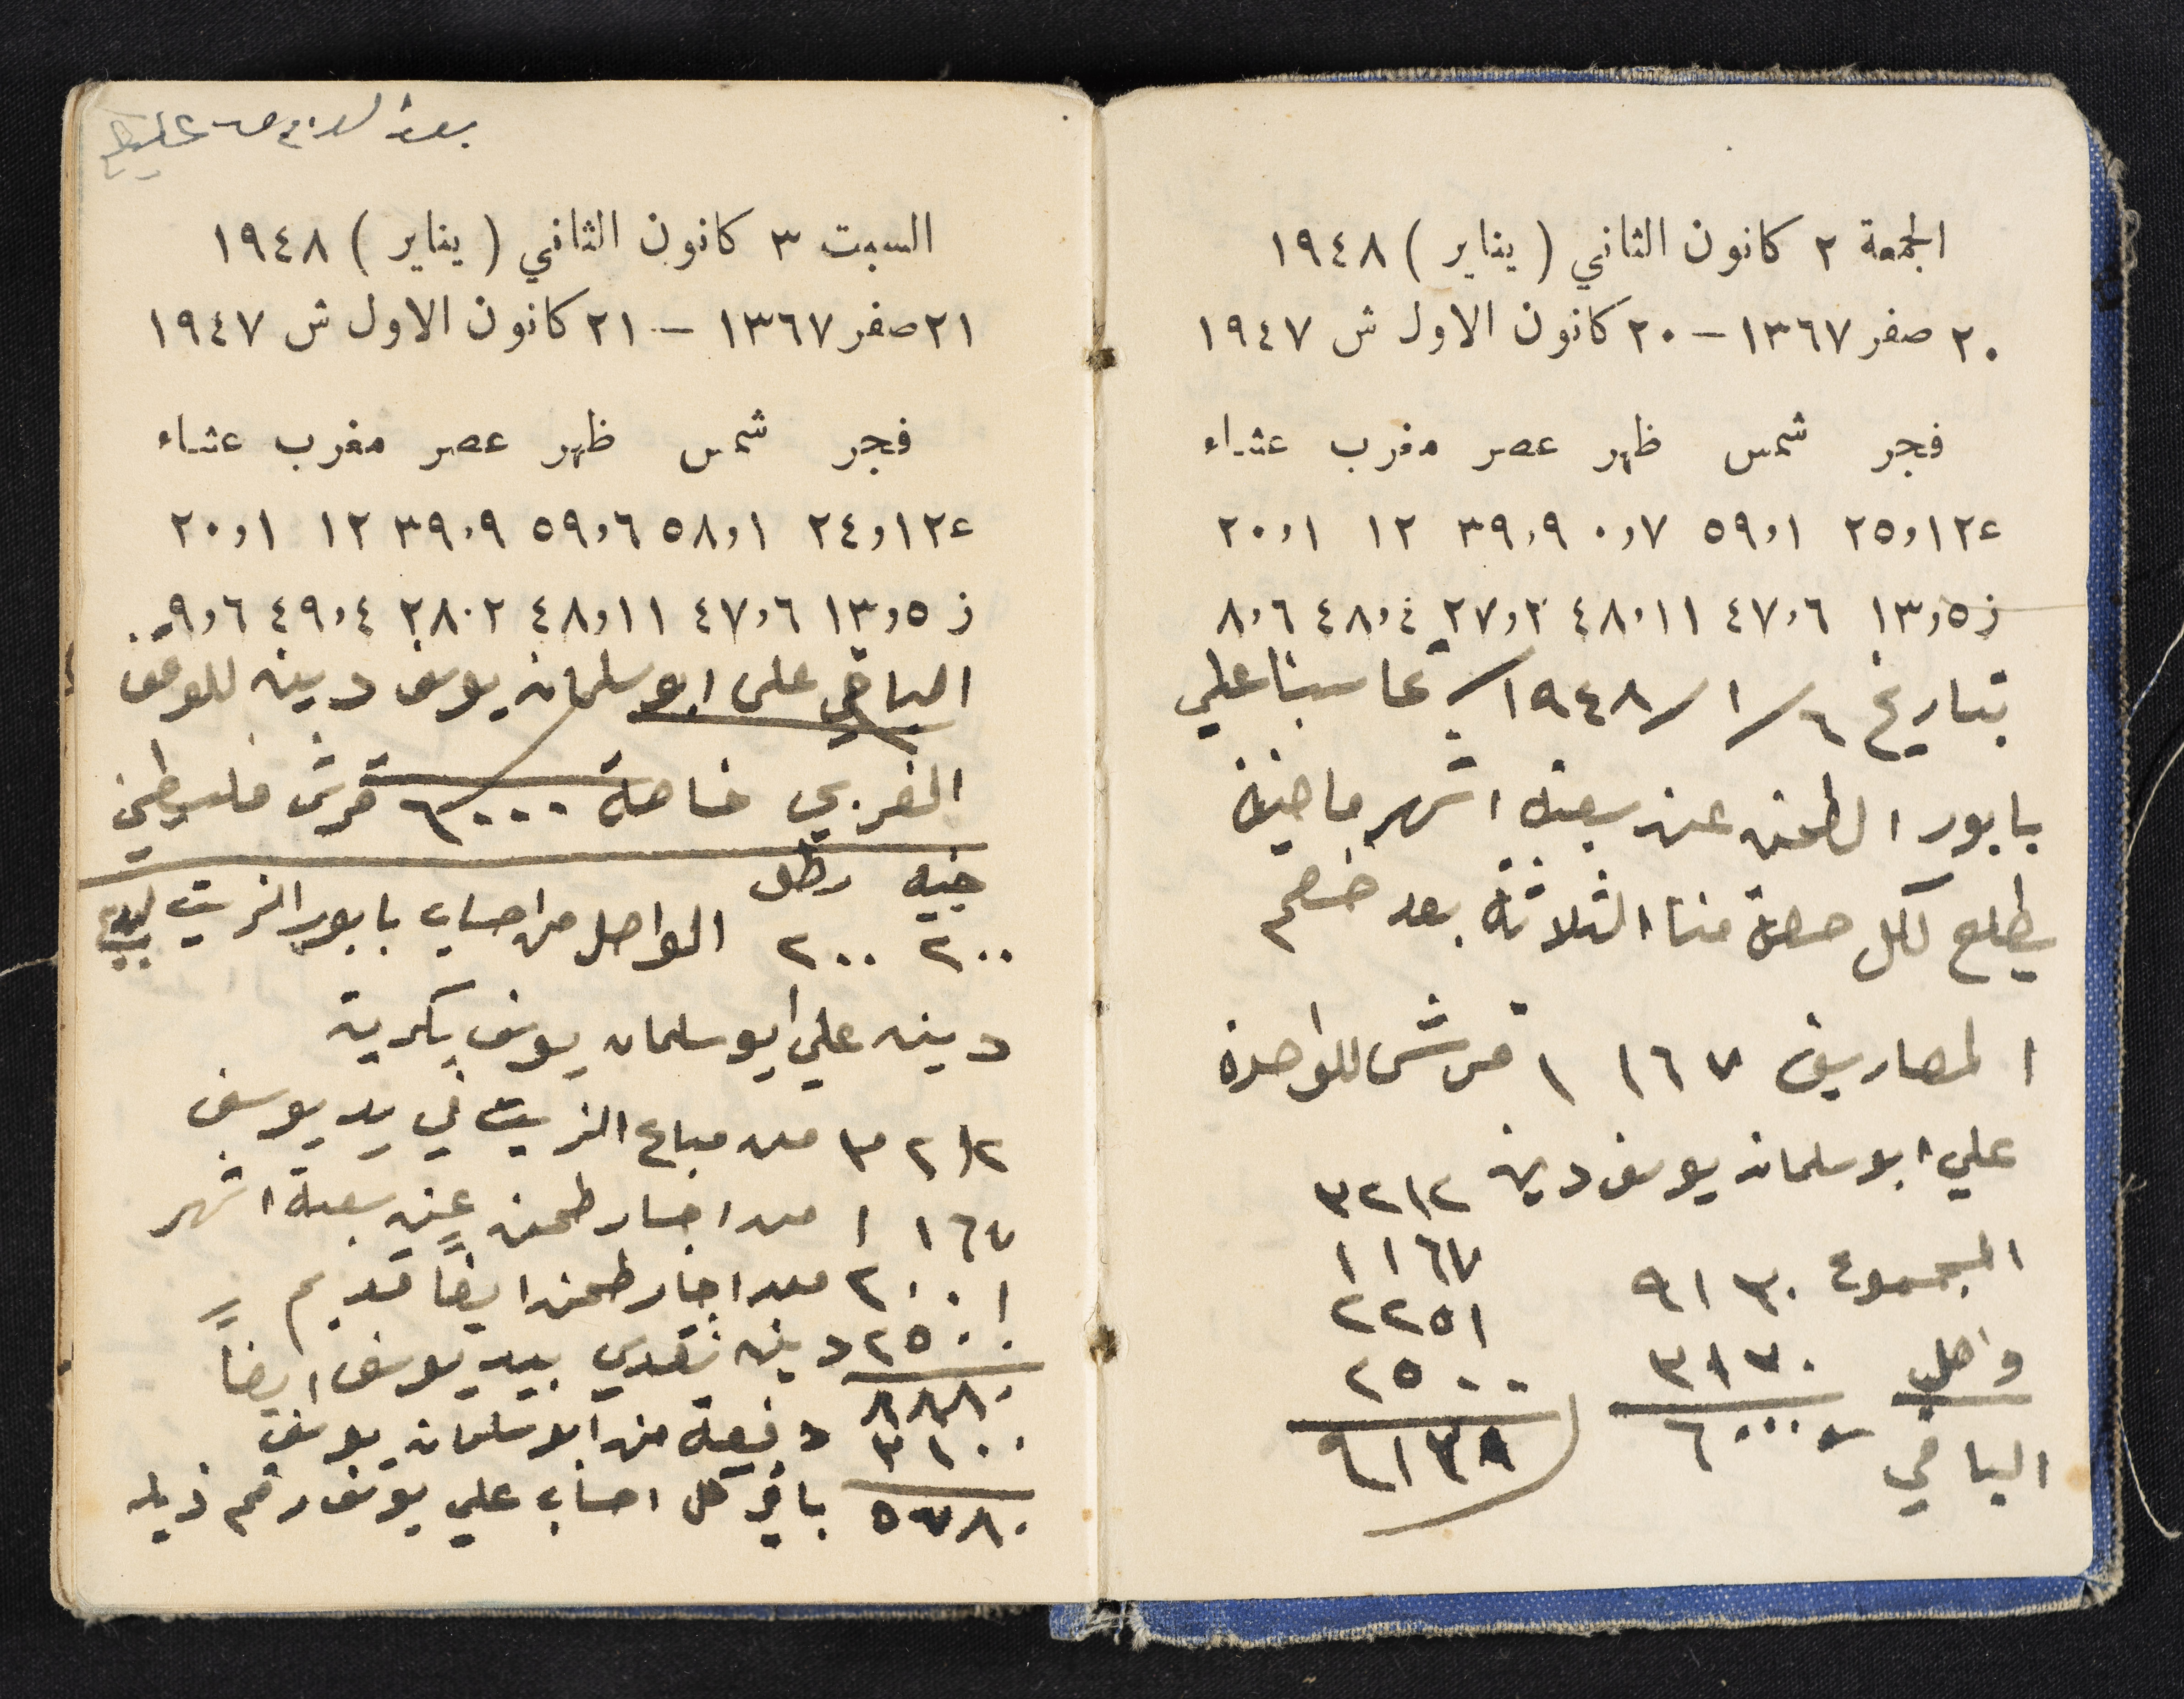 الجمعة ٢ كانون الثاني ( يناير ) ١٩٤٨
٢٠ صفر ١٣٦٧ – ٢٠ كانون الاول ش ١٩٤٧
فجر شمس ظهر عصر مغرب عشاء
ع ١٢،٢٥ ١،٥٩ ٧،٠ ٩،٣٩ ١٢ ١،٢٠
ز ٥،١٣ ٦،٤٧ ١١،٤٨ ٢،٢٧ ٤،٤٨ ٦،٨
بتاريخ ٦/١/١٩٤٨ تحاسبنا علي
بابور الطحن عن سبعة اشهر ماضية
يطلع لكل حصة منا الثلاثة بعد خصم
المصاريف ١١٦٧ قرش للواحدة
علي ابو سلمان يوسف دين ٣٢١٢
١١٦٧
٢٢٥١
٢٥٠٠
٩١٣٩
المجموع ٩١٣٠
واصل ٣١٣٠
الباقي ٦٠٠٠
السبت ٣ كانون الثاني ( يناير ) ١٩٤٨
٢١ صفر ١٣٦٧ – ٢١ كانون الاول ش ١٩٤٧
فجر شمس ظهر عصر مغرب عشاء
ع ١٢،٢٤ ١،٥٨ ٦،٥٩ ٩،٣٩ ١٢ ١،٢٠
ز ٥،١٣ ٦،٤٧ ١١،٤٨ ٢،٢٨ ٤،٤٩ ٦،٩
الباقي على ابو سلمان يوسف دين للوقف
الغربي خاصة ٦٠٠٠ قرش فلسطيني
جنيه رطل
٢٠٠ ٢٠٠ الواصل من احساب بابور الزيت
دين علي ابو سلمان يوسف بكرية
٣٢١٢ من مباع الزيت في يد يوسف
١١٦٧ من اجار طحن عن سبعة اشهر
٢٠٠١ من اجار طحن ايضا قديم
٢٥٠٠ دين نقدي بيد يوسف ايضاً
٨٨٨٠
٣١٠٠ دفيعة من ابو سلمان يوسف
٥٧٨٠ باقي كل احساب علي يوسف رقم ذيله